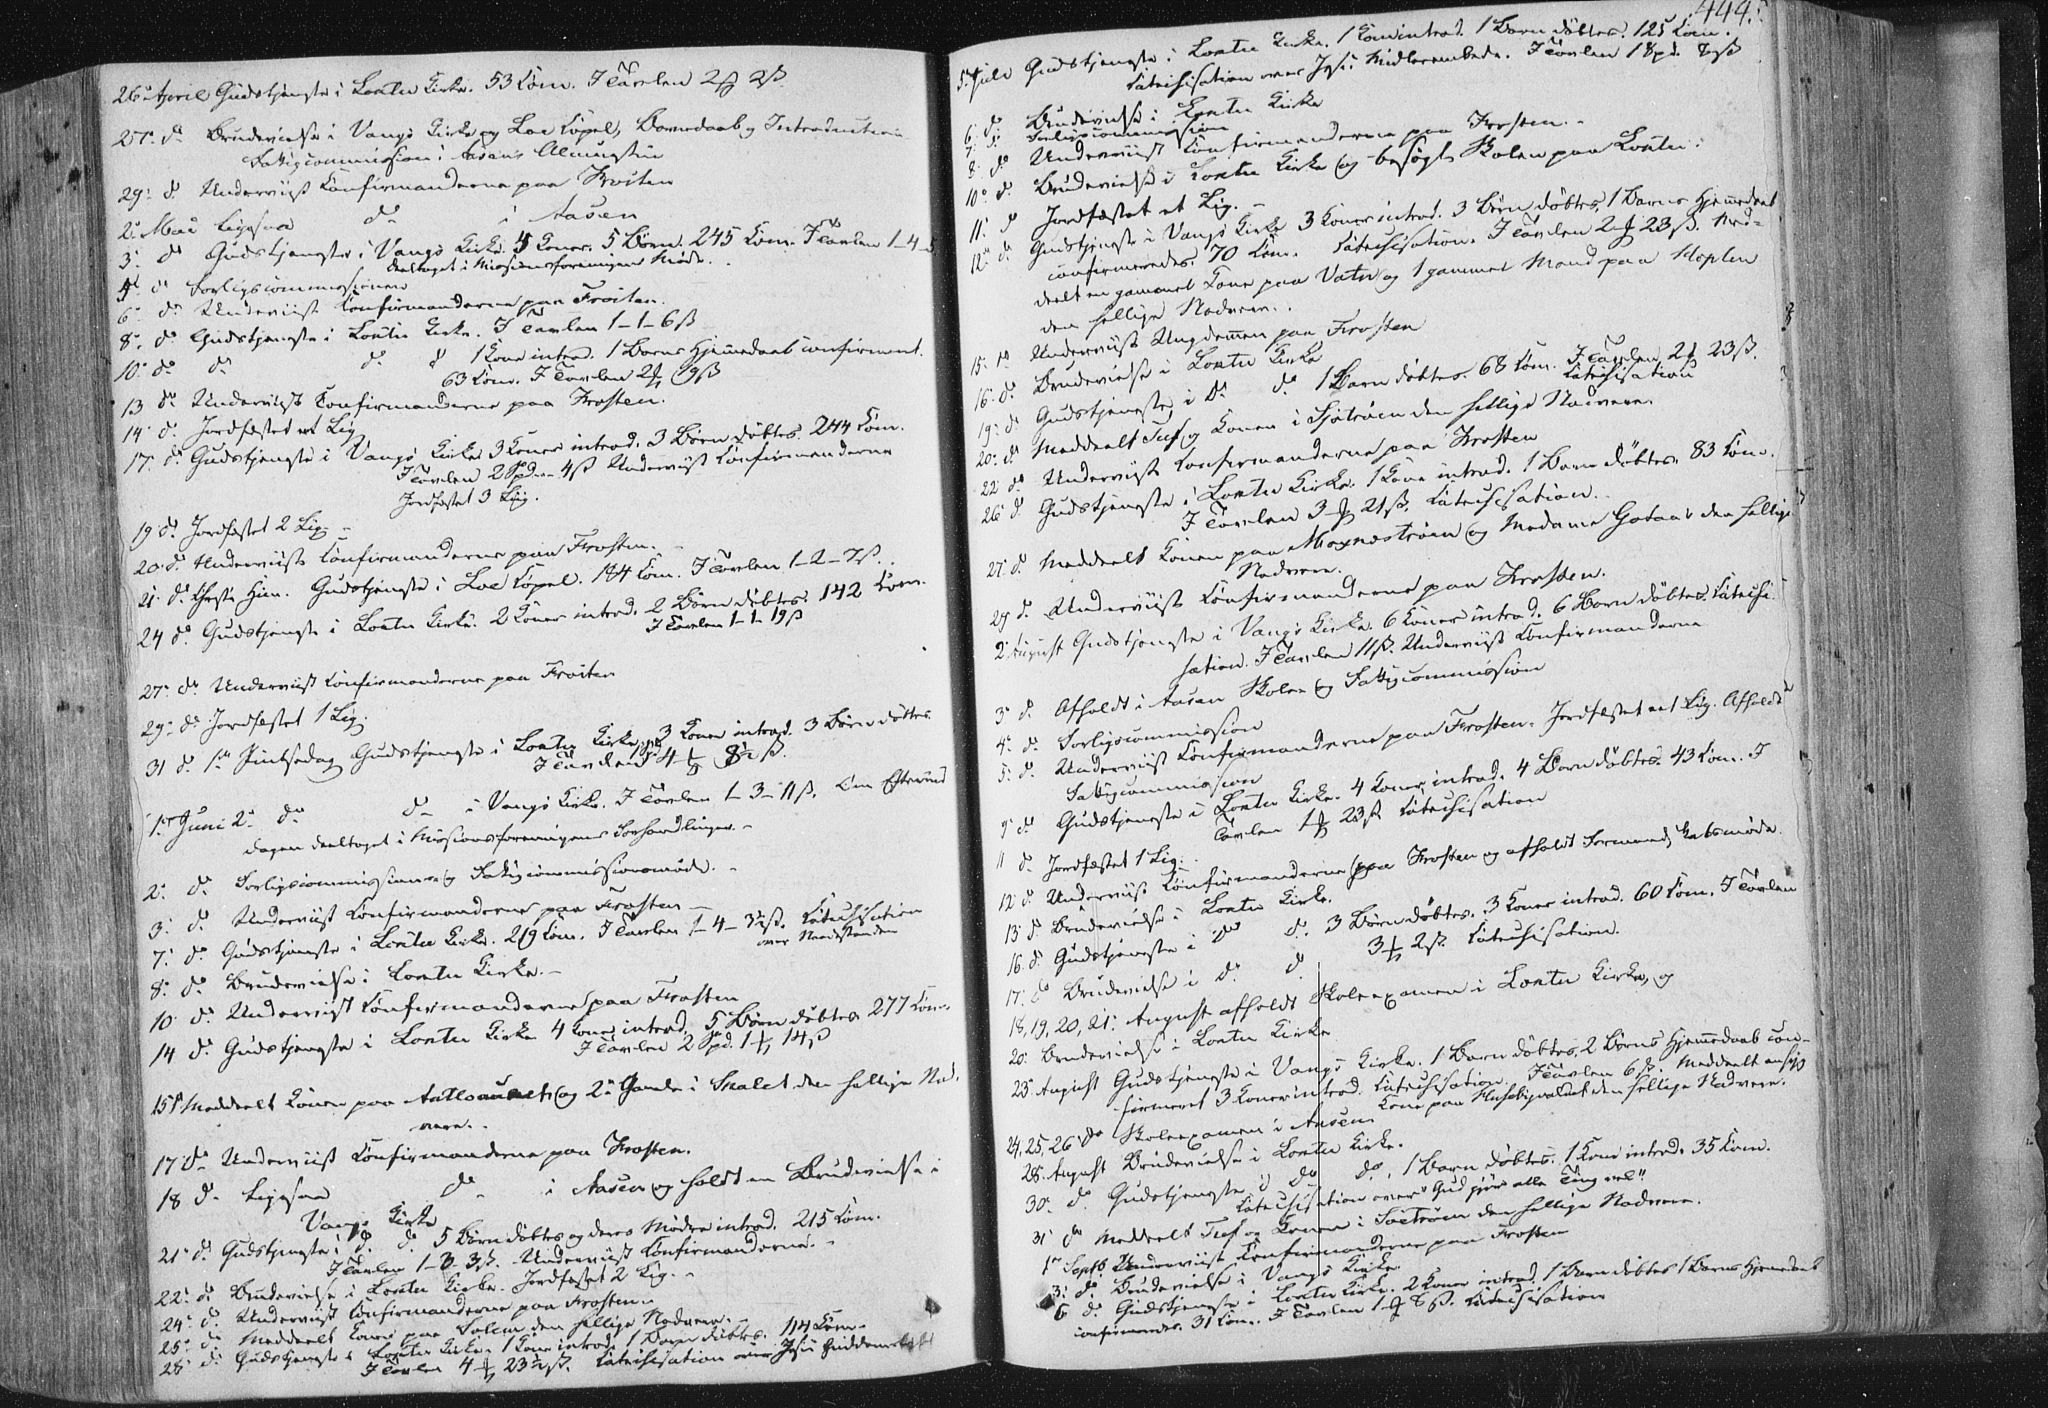 26' April Gudstjeneste i Logtu Kirke. 53 Kom. I Tavlen 2 ʄ 2 ß.
27' d° Brudevielse i Vangs Kirke og Loe Capel, Barnedaab og Introduction
Fattigcommission i Aasens Almenstue
29' d° Underviist Konfirmanderne paa Frosten
2' Mai Ligesaa d° i Aasen
3' d° Gudstjeneste i Vangs Kirke. 5 Koner. 5 Børn. 245 Kom. I Tavlen 1-4-
Deeltaget i Missionsforeningens Møde.
4' d° Forligscommissionen
6' d° Underviist Konfirmanderne paa Frosten.
8' d° Gudstjeneste i Logtu Kirke. I Tavlen 1-1-6 ß
10' d° d° d° d° 1 Kone introd. 1 Barns Hjemmedaab confirmeret.
63 Kom. I Tavlen 2 ʄ 9 ß
13 d° Underviist Konfirmanderne paa Frosten.
14' d° Jordfæstet et Lig
17' d° Gudstjeneste i Vangs Kirke 3 Koner introd. 3 Børn døbtes. 244 Kom.
I Tavlen 2 Spd - 4 ß Underviist Konfirmanderne
Jordfæstet 3 Lig.
19 d° Jordfæstet 2 Lig. -
20' d° Underviist Konfirmanderne paa Frosten.
21' d° Christi Him. Gudstjeneste i Loe Capel. 144 Kom. I Tavlen 1-2-7 ß.
24 d° Gudstjeneste i Logtu Kirke. 2 Koner introd. 2 Børn døbtes. 142 Kom.
I Tavlen 1-1-19 ß
27' d° Underviist Konfirmanderne paa Frosten
29' d° Jordfæstet 1 Lig.
31 d° 1ste Pintsedag Gudstjeneste i Logtu Kirke. 3 Koner introd. 3 Børn døbtes.
I Tavlen 4 ʄ 8½ ß.
1ste Juni 2' d° d° i Vangs Kirke. I Tavlen 1-3-11 ß. Om Eftermid
dagen deeltaget i Missionsforeningens Forhandlinger. -
2' d° Forligscommissions og Fattigcommissionsmøde. -
3' d° Underviist Konfirmanderne paa Frosten -
7' d° Gudstjeneste i Logtu Kirke. 219 Kom. I Tavlen 1-4-3½ ß. Catechisation
over Naadestanden
8' d° Brudevielse i Logtu Kirke. -
10' d° Underviist Konfirmanderne paa Frosten
14 d° Gudstjeneste i Logtu Kirke 4 Koner introd. 5 Børn døbtes 277 Kom.
I Tavlen 2 Spd. 1 ʄ 14 ß
15' d° Meddeelt Konen paa og 2 Gamle i den hellige Nad-
vere. -
17' d° Underviist Konfirmanderne paa Frosten.
18 d° Ligesaa d° i Aasen og holdt en Brudevielse i
Vangs Kirke
21' d° Gudstjeneste i d° d° 5 Børn døbtes og deres Mødre introd. 215 Kom.
I Tavlen 1-3-3 ß. Underviist Konfirmanderne. -
22' d° Brudevielse i Logtu Kirke. Jordfæstet 2 Lig. -
24' d° Underviist Konfirmanderne paa Frosten. -
25' d° Meddeelt Konen paa den hellige Nadvere. -
28' d° Gudstjeneste i Logtu Kirke. 1 Kone introd. 1 Barn døbtes. 114 Kom.
I Tavlen 4 ʄ 23½ ß. Catechisation over Jesu
444.
5' Juli Gudstjeneste i Logtu Kirke. 1 Kone introd. 1 Barn døbtes. 125 Kom.
Catechisation over Jesu Midlerembede. I Tavlen 1 Spd. 8 ß
6' d° Brudevielse i Logtu Kirke
7' d° Forligscommission
8' d° Underviist Konfirmanderne paa Frosten. -
10' d° Brudevielse i Logtu Kirke og besøgt Skolen paa Logtu.
11' d° Jordfæstet et Lig. -
12' d° Gudstjeneste i Vangs Kirke 3 Koner introd. 3 Børn døbtes, 1 Barns Hjemmedaab
confirmeredes. 70 Kom. Catechisation. I Tavlen 2 ʄ 23 ß. Med-
deelt en gammel Kone paa Vatn og 1 gammel Mand paa Hoplen
den hellige Nadvere. .
15' d° Underviist Ungdommen paa Frosten
16' d° Brudevielse i Logtu Kirke
19' d° Gudstjeneste i d° d° 1 Barn døbtes. 68 Kom. I Tavlen 2 ʄ 23 ß.
Catechisation
20' d° Meddeelt og Konen i den hellige Nadvere.
22' d° Underviist Konfirmanderne paa Frosten
26' d° Gudstjeneste i Logtu Kirke. 1 Kone introd. 1 Barn døbtes. 83 Kom.
I Tavlen 3 ʄ 21 ß. Catechisation.
27' d° Meddeelt Konen paa og Madame den hellige
Nadvere.
29 d° Underviist Konfirmanderne paa Frosten.
2' August Gudstjeneste i Vangs Kirke. 6 Koner introd. 6 Børn døbtes. Catechi-
sation. I Tavlen 11 ß. Underviist Konfirmanderne
3' d° Afholdt i Aasen Skolen og Fattigcommission
4' d° Forligscommission
5' d° Underviist Konfirmanderne paa Frosten. Jordfæstet et Lig. Afholdt
Fattigcommission
9' d° Gudstjeneste i Logtu Kirke. 4 Koner introd. 4 Børn døbtes. 43 Kom. I
Tavlen 1 ʄ 23 ß Catechisation
11 d° Jordfæstet 1 Lig. -
12' d° Underviist Konfirmanderne paa Frosten og afholdt Formandskabsmøde.
13' d° Brudevielse i Logtu Kirke.
16' d° Gudstjeneste i d° d° 3 Børn døbtes. 3 Koner introd. 60 Kom. I Tavlen
3 ʄ 2 ß Catechisation.
17' d° Brudevielse i d° d°
18, 19, 20, 21' August afholdt Skoleexamen i Logtu Kirke, og
20' Brudevielse i Logtu Kirke
23' August Gudstjeneste i Vangs Kirke. 1 Barn døbtes, 2 Børns Hjemmedaab con-
firmeret 3 Koner introd. Catechisation. I Tavlen 6 ß. Meddeelt en syg
Kone paa den hellige Nadvere.
24, 25, 26' d° Skoleexamen i Aasen
28' August Brudevielse i Logtu Kirke.
30' d° Gudstjeneste i d° d°. 1 Barn døbtes. 1 Kone introd. 35 Kom.
Catechisation over "Gud gjør alle Ting vel"
31' d° Meddeelt og Konen i den hellige Nadvere.
1ste Septb Underviist Konfirmanderne paa Frosten
3' d° Brudevielse i Vangs Kirke
6 d° Gudstjeneste i Logtu Kirke. 2 Koner introd. 1 Barn døbtes 1 Barns Hjemmedaab
confirmeredes. 31 Kom. I Tavlen 1 ʄ 8 ß. Catechisation